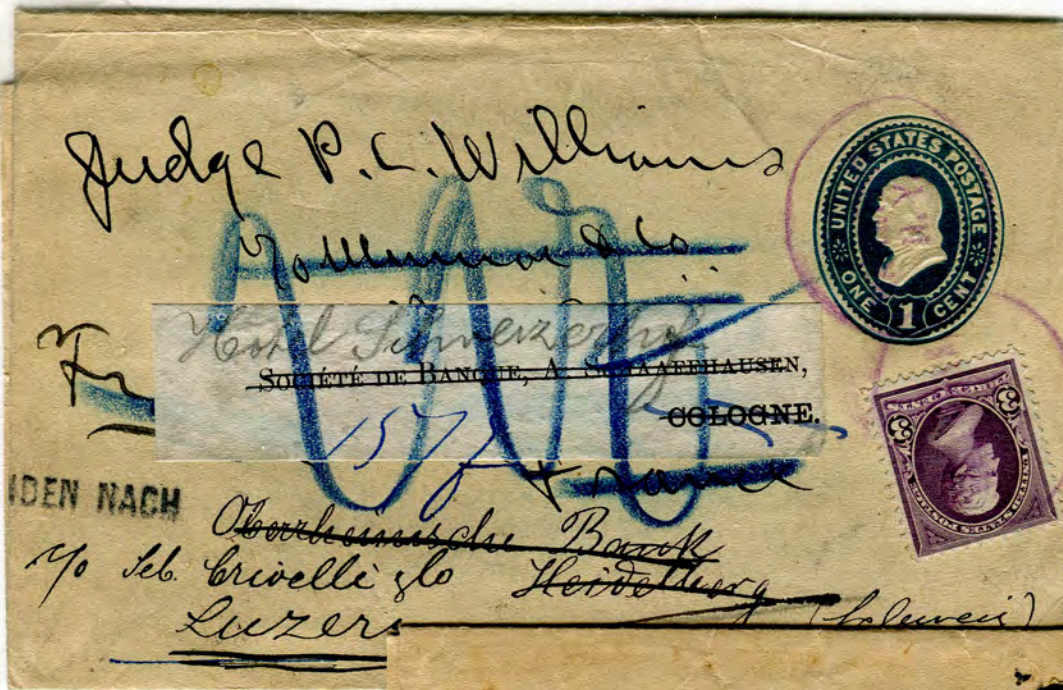 Judge P. C. Williams
UNITED STATES POSTAGE
ONE 1 CENT
& Co
Hotel Schweizerhof
SOCIÉTÉ DE BANQUE, A. SCHAAFFHAUSEN,
COLOGNE.
3 3
UNITED STATES POSTAGE
France
NDEN NACH
Oberrheinische Bank
c/o Seb. Crivelli & Co Heidelberg
Luzern (Schweiz)